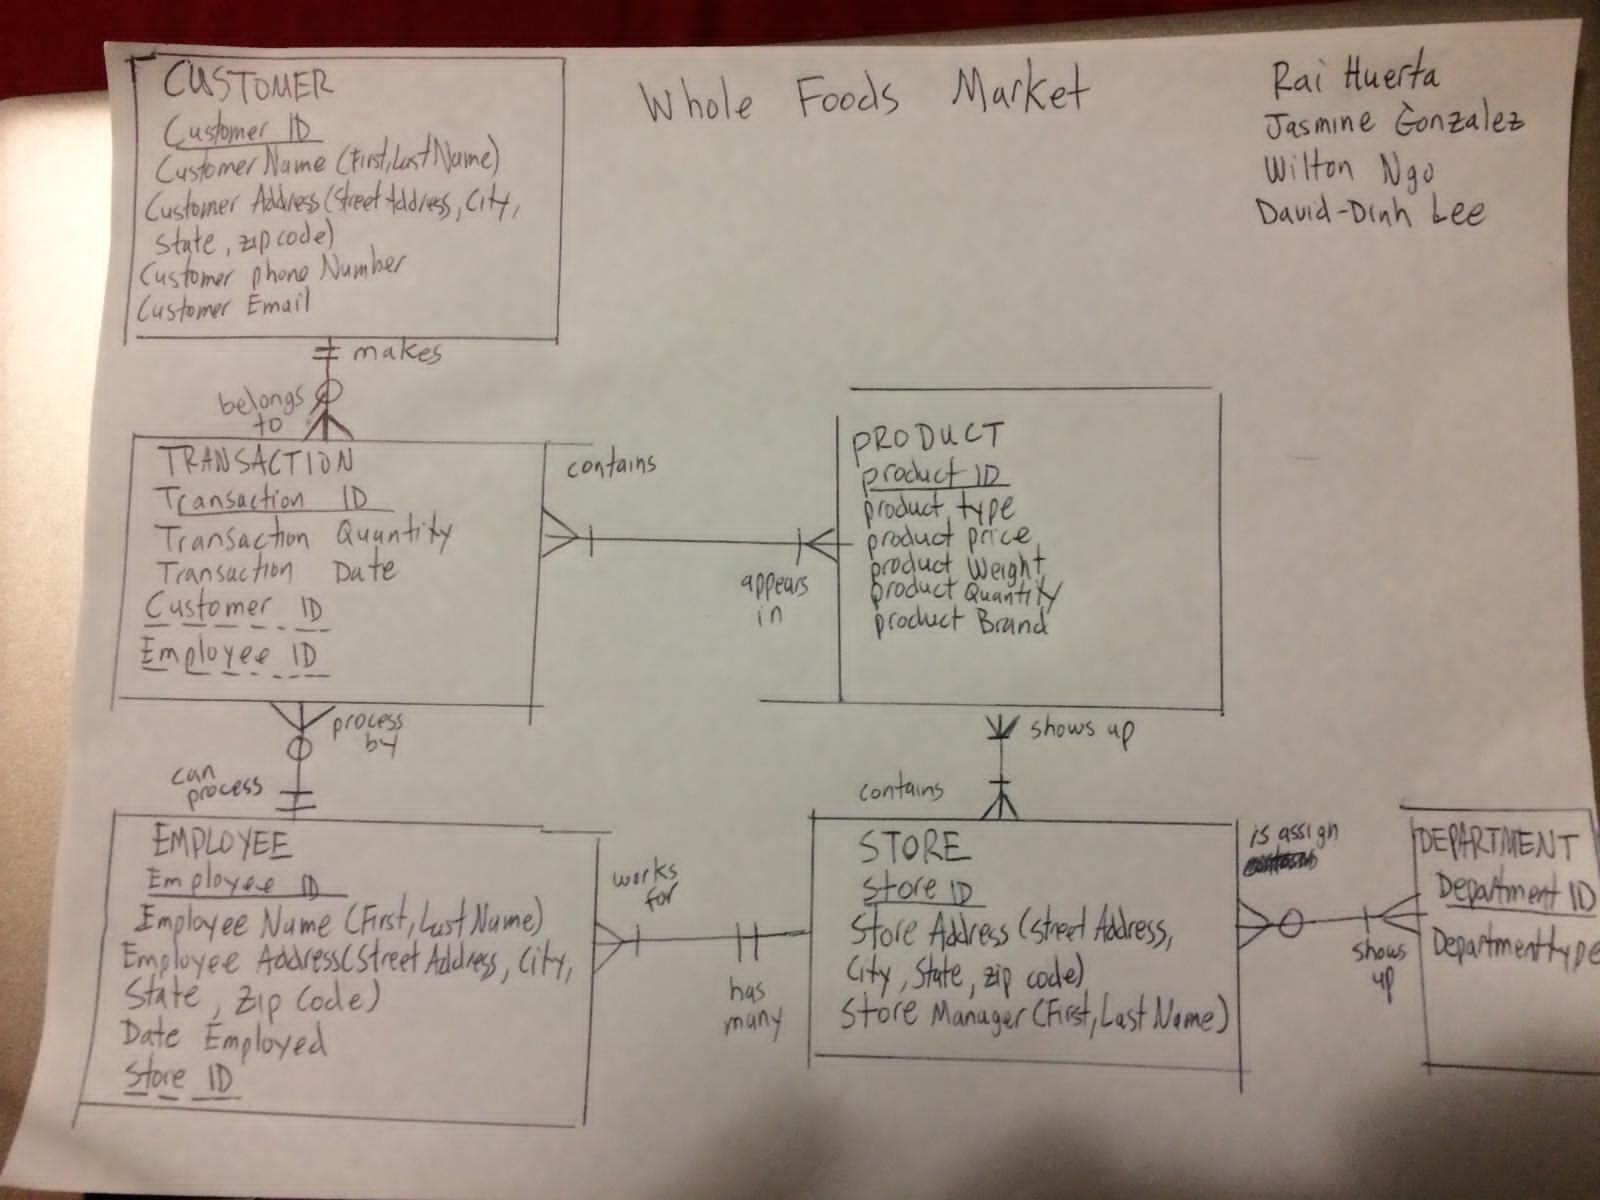 Whole Foods Market
Rai Huerta
Jasmine Gonzalez
Wilton Ngo
David-Dinh Lee
CUSTOMER
Customer ID
Customer Name (First, Last Name)
Customer Address (Street Address, City,
State, zip code)
Customer phone Number
Customer Email
makes
belongs
to
TRANSACTION
Transaction ID
Transaction Quantity
Transaction Date
Customer ID
Employee ID
contains
appears
in
PRODUCT
product ID
product type
product price
product Weight
product Quantity
product Brand
process
by
can
process
shows up
contains
EMPLOYEE
Employee ID
Employee Name (First, Last Name)
Employee Address (Street Address, City,
State, Zip Code)
Date Employed
Store ID
works
for
has
many
STORE
Store ID
Store Address (Street Address,
City, State, zip code)
Store Manager (First, Last Name)
is assign
shows
up
DEPARTMENT
Department ID
Department type